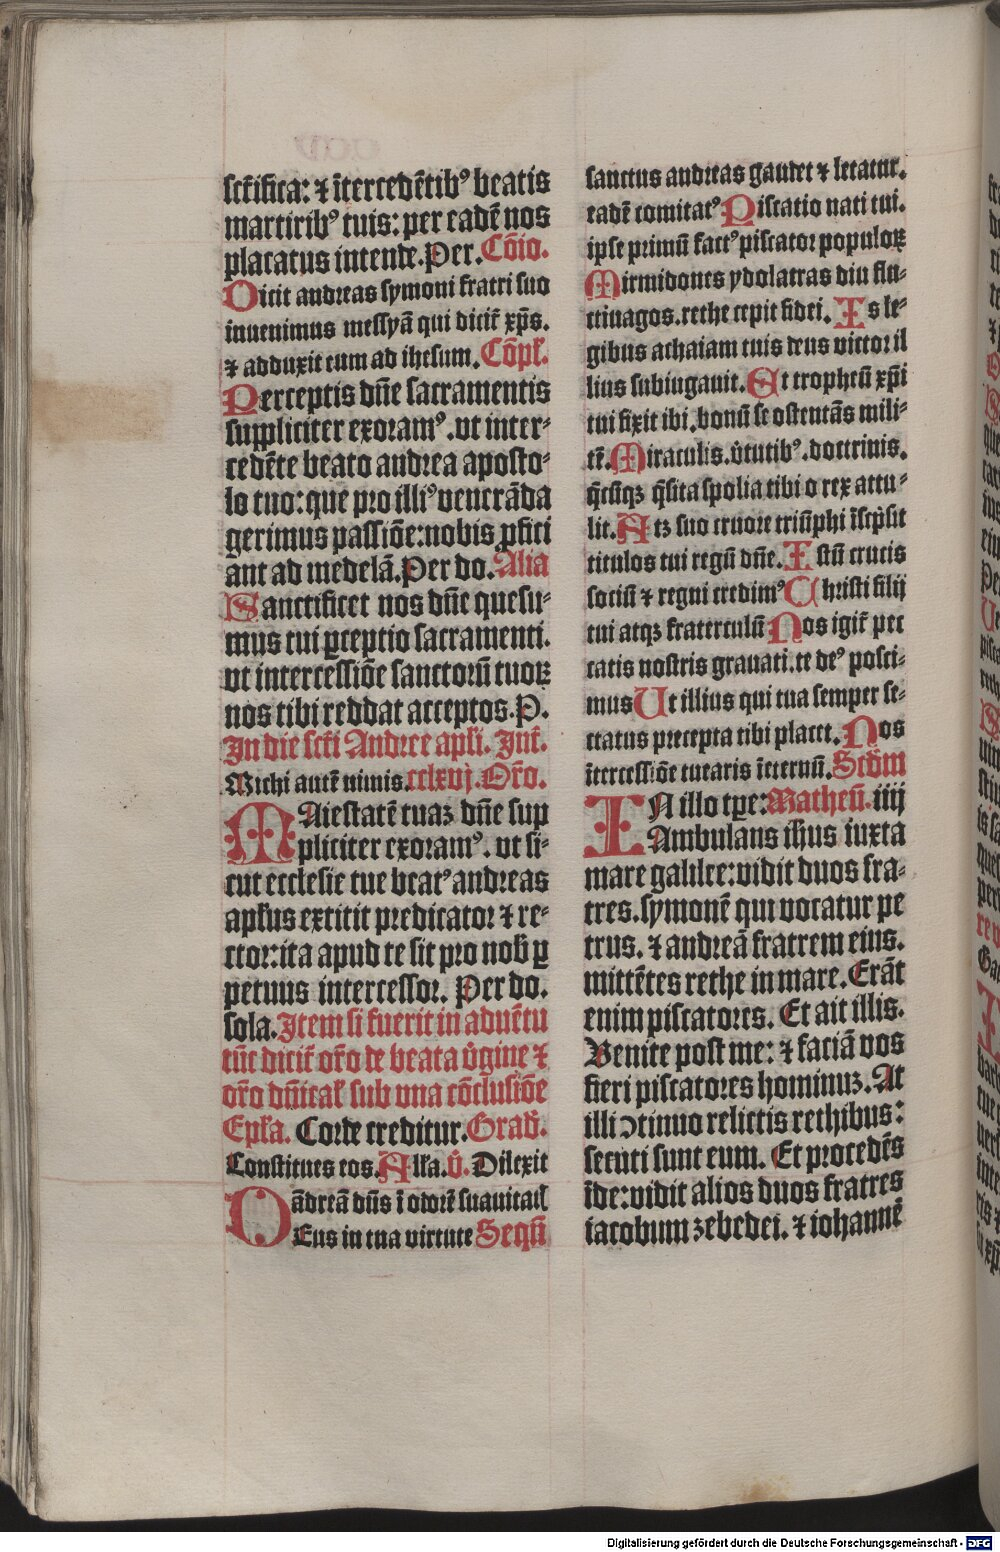 sctifica: ⁊ ītercedētibꝰ beatis
martiribꝰ tuis: per eadē nos
placatus intende. Per. Cōio.
Dicit andreas symoni fratri suo
inuenimus messyā qui dicit̄ xp̄s.
⁊ adduxit eum ad ihesum. Cōpl̄.
Perceptis dn̄e sacramentis
suppliciter exoramꝰ. vt inter-
cedēte beato andrea aposto-
lo tuo: que pro illiꝰ venerāda
gerimus passiōe: nobis ꝓfici
ant ad medelā. Per do. Alia
Sanctificet nos dn̄e quesu-
mus tui ꝑceptio sacramenti.
vt intercessiōe sanctorū tuoꝝ
nos tibi reddat acceptos. P.
In die sct̄i Andree apl̄i. Int̄.
Michi autē nimis. cclxvj. Or̄o.
MAiestatē tuaꝫ dn̄e sup
pliciter exoramꝰ. vt si-
cut ecclesie tue beatꝰ andreas
apl̄us extitit predicator ⁊ re-
ctor: ita apud te sit pro nob̄ ꝑ
petuus intercessor. Per do.
sola. Item si fuerit in aduētu
tūc dicit̄ or̄o de beata v̄gine ⁊
or̄o dn̄ical̄ sub vna cōclusiōe
Epl̄a. Corde creditur. Grad̄.
Constitues eos. All̄a. v̄. Dilexit
āndreā dn̄s ī odorē suauitatl̄
DEus in tua virtute Seqn̄
sanctus andreas gaudet ⁊ letatur.
eadē comitatꝰ Piscatio nati tui.
ipse primū factꝰ piscator populoꝝ
Mirmidones ydolatras diu flu-
ctiuagos. rethe cepit fidei. Is le-
gibus achaiam tuis deus victor il
lius subiugauit. Et tropheū xp̄i
tui fixit ibi. bonū se ostentās mili-
tē. Miraculis. v̄tutibꝰ. doctrinis.
q̄cūqꝫ q̄sita spolia tibi o rex attu-
lit. Atꝫ suo cruore triūphi īscp̄sit
titulos tui regū dn̄e. Istū crucis
sociū ⁊ regni credimꝰ Christi filij
tui atqꝫ fraterculū Nos igit̄ pec
catis nostris grauati. te deꝰ posci-
mus Ut illius qui tua semper se-
ctatus precepta tibi placet. Nos
ītercessiōe tuearis īeternū. Scd̄m
IN illo tp̄e: Matheū. iiij
Ambulans ih̄us iuxta
mare galilee: vidit duos fra-
tres. symonē qui vocatur pe
trus. ⁊ andreā fratrem eius.
mittētes rethe in mare. Erāt
enim piscatores. Et ait illis.
Venite post me: ⁊ faciā vos
fieri piscatores hominuꝫ. At
illi ↄtinuo relictis rethibus:
secuti sunt eum. Et procedēs
īde: vidit alios duos fratres
iacobum zebedei. ⁊ iohannē
Digitalisierung gefördert durch die Deutsche Forschungsgemeinschaft - DFG